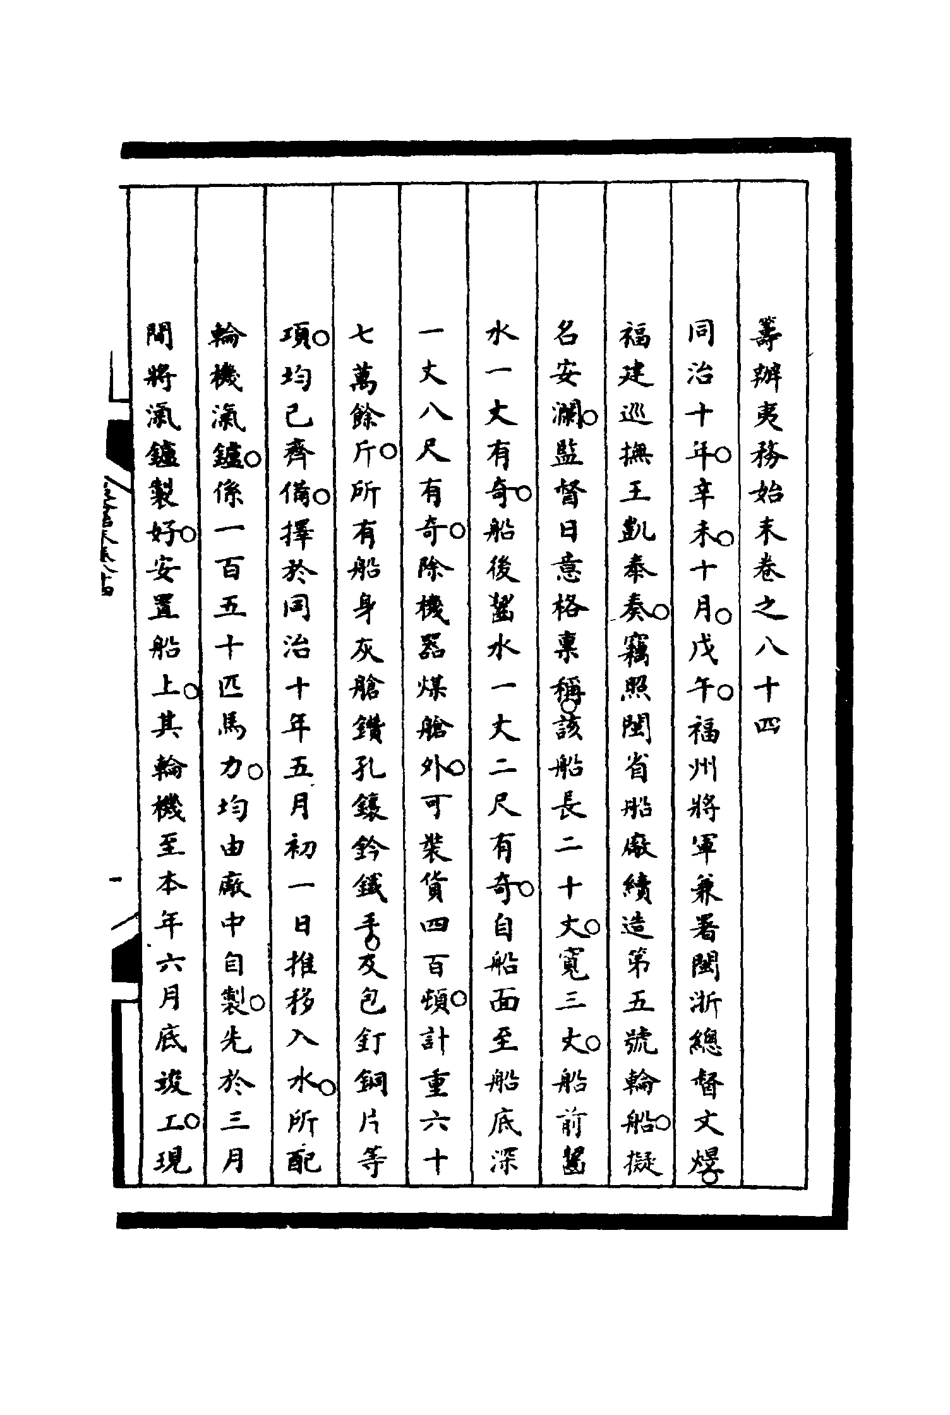 籌辦夷務始末卷之八十四
同治十年。辛未。十月。戊午。福州將軍兼署閩浙總督文煜。
福建巡撫王凱泰奏。竊照閩省船廠續造第五號輪船。擬
名安瀾。監督日意格稟稱。該船長二十丈。寬三丈。船前齧
水一丈有奇。船後齧水一丈二尺有奇。自船面至船底深
一丈八尺有奇。除機器煤艙外。可裝貨四百頓。計重六十
七萬餘斤。所有船身灰艙鑽孔鑲鈐鐵手。及包釘銅片等
項。均已齊備。擇於同治十年五月初一日推移入水。所配
輪機滊鑪。係一百五十匹馬力。均由廠中自製。先於三月
間將滊鑪製好。安置船上。其輪機至本年六月底竣工。現